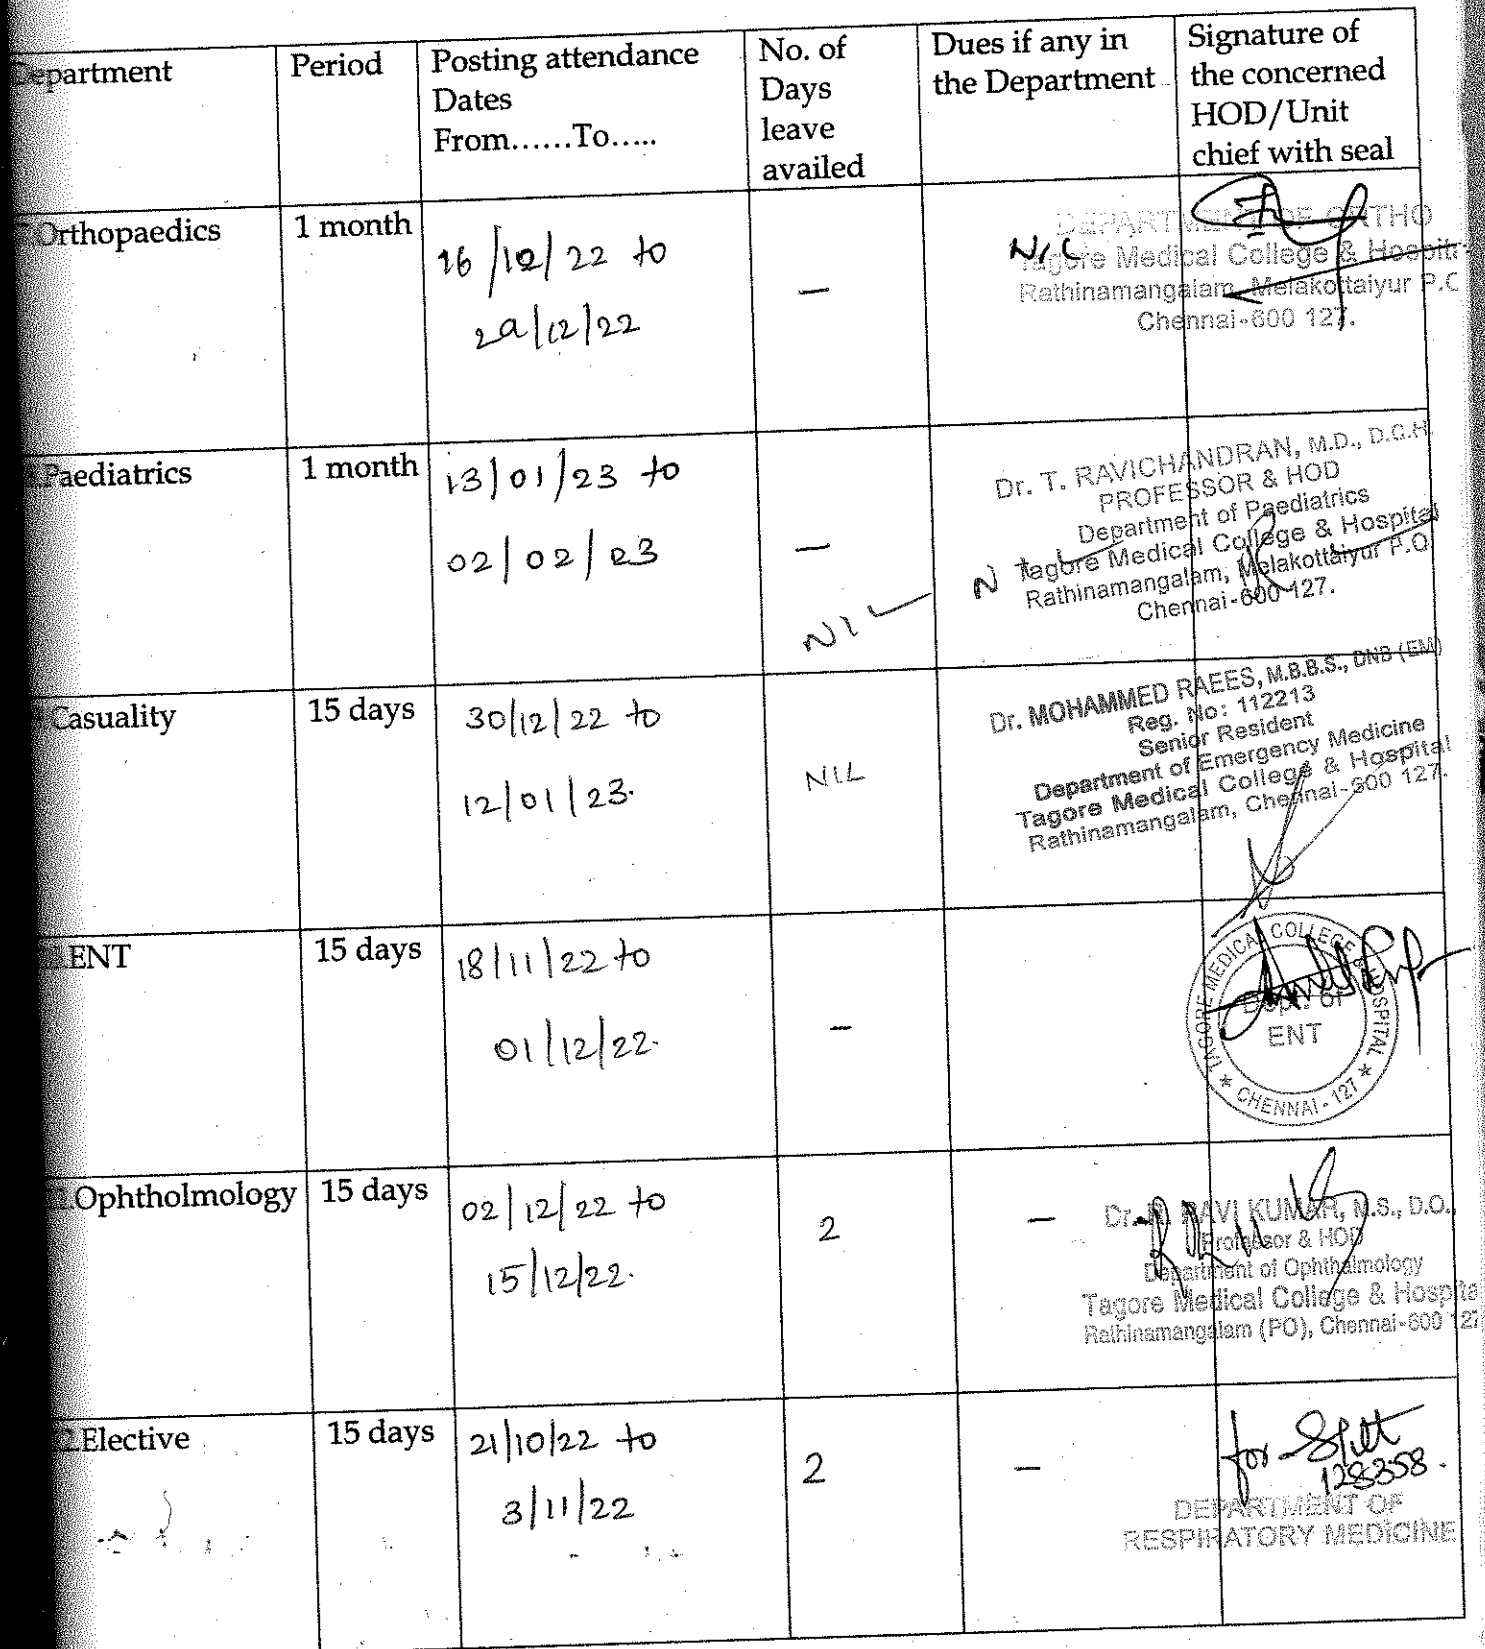 Department
Period
Posting attendance
Dates
From......To.....
No. of
Days
leave
availed
Dues if any in
the Department
Signature of
the concerned
HOD/Unit
chief with seal
Orthopaedics
1 month
16/12/22 to
29/12/22
—
NIL
DEPARTMENT OF ORTHO
Tagore Medical College & Hospit
Rathinamangalam, Melakottaiyur P.O
Chennai-600 127.
Paediatrics
1 month
13/01/23 to
02/02/23
—
NIL
NIL
Dr. T. RAVICHANDRAN, M.D., D.C.H
PROFESSOR & HOD
Department of Paediatrics
Tagore Medical College & Hospital
Rathinamangalam, Melakottaiyur P.O
Chennai-600 127.
Casuality
15 days
30/12/22 to
12/01/23.
NIL
Dr. MOHAMMED RAEES, M.B.B.S., DNB (EM)
Reg. No: 112213
Senior Resident
Department of Emergency Medicine
Tagore Medical College & Hospital
Rathinamangalam, Chennai-600 127.
ENT
15 days
18/11/22 to
01/12/22.
—
TAGORE MEDICAL COLLEGE & HOSPITAL
Dept. of
ENT
★ CHENNAI - 127 ★
.Ophtholmology
15 days
02/12/22 to
15/12/22.
2
—
Dr. RAVI KUMAR, M.S., D.O.,
Professor & HOD
Department of Ophthalmology
Tagore Medical College & Hospita
Rathinamangalam (PO), Chennai-600 127
2.Elective
15 days
21/10/22 to
3/11/22
2
—
for
128358.
DEPARTMENT OF
RESPIRATORY MEDICINE